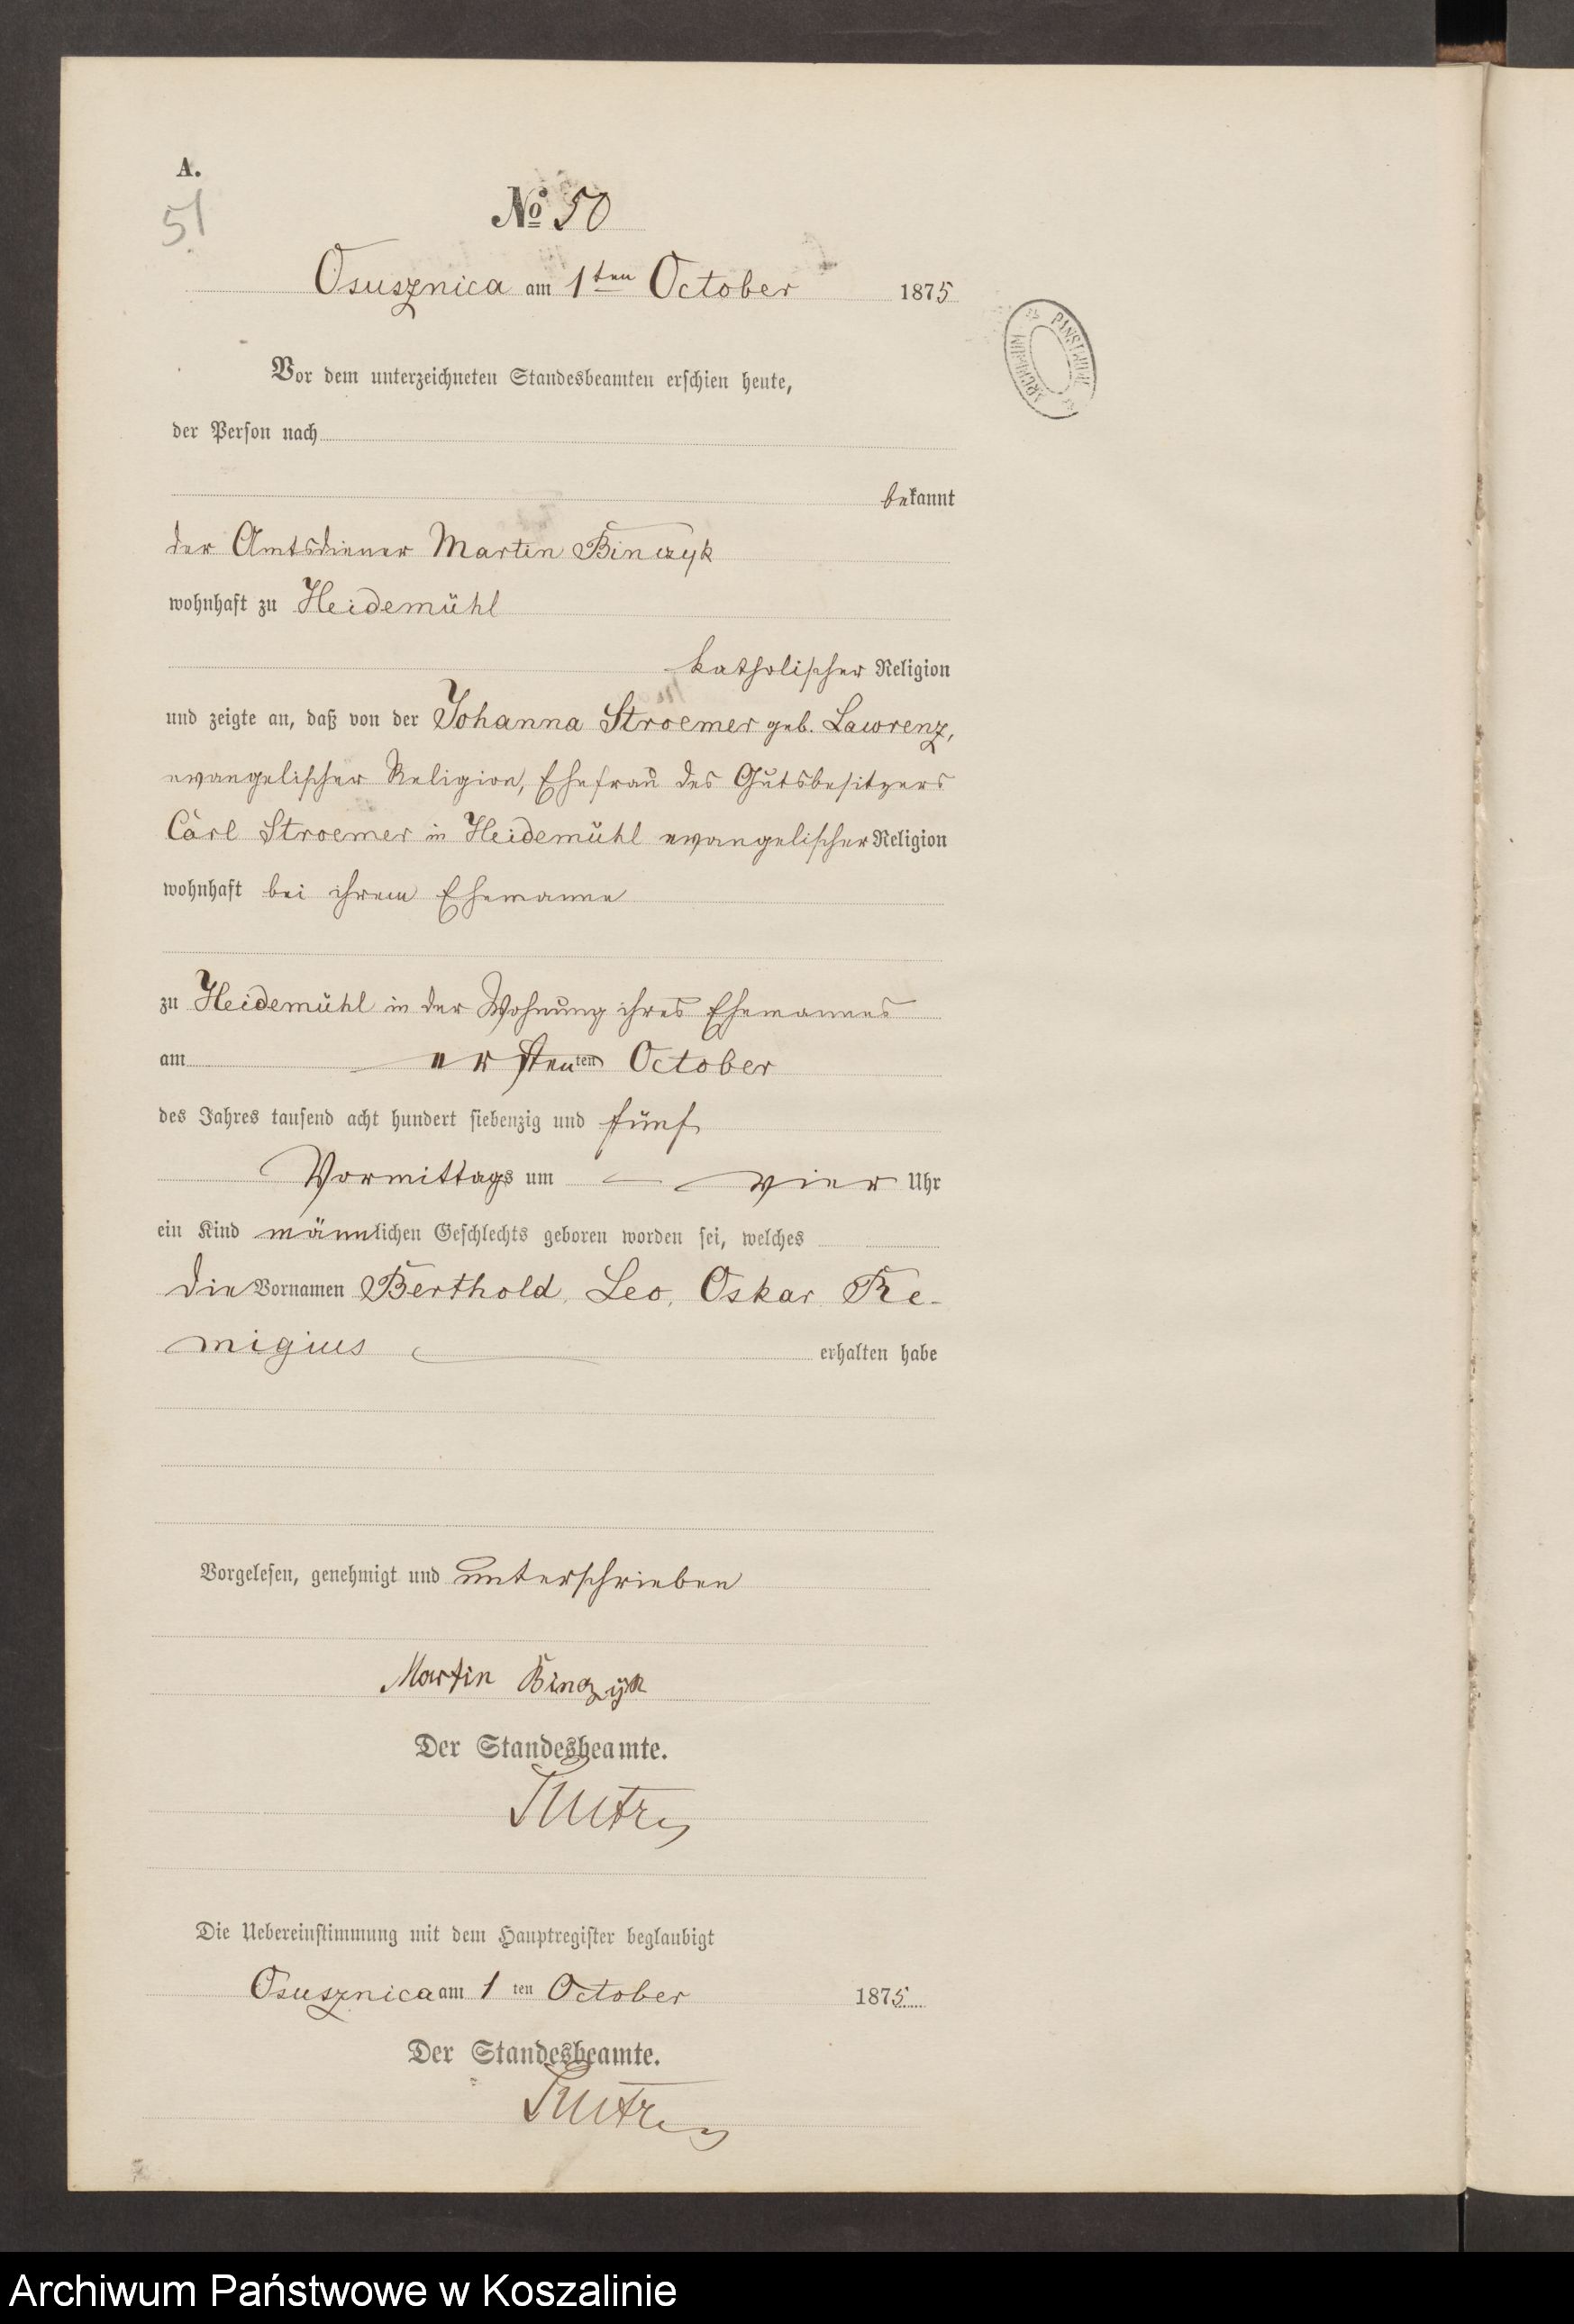 A.
51
No 50
Osusznica am 1ten October 1875
Vor dem unterzeichneten Standesbeamten erschien heute,
der Person nach
bekannt
der Amtsdiener Martin Binczyk
wohnhaft zu Heidemühl
katholischer Religion
und zeigte an, daß von der Johanna Stroemer geb. Lawrenz,
evangelischer Religion, Ehefrau des Gutsbesitzers
Carl Stroemer in Heidemühl evangelischer Religion
wohnhaft bei ihrem Ehemanne
zu Heidemühl in der Wohnung ihres Ehemannes
am ersten ten October
des Jahres tausend acht hundert siebenzig und fünf
Vormittags um vier Uhr
ein Kind männlichen Geschlechts geboren worden sei, welches
die Vornamen Berthold, Leo, Oskar Re-
migius erhalten habe
Vorgelesen, genehmigt und unterschrieben
Martin Binczyk
Der Standesbeamte.
Die Uebereinstimmung mit dem Hauptregister beglaubigt
Osusznica am 1 ten October 1875
Der Standesbeamte.
ARCHIWUM PAŃSTWOWE
Archiwum Państwowe w Koszalinie